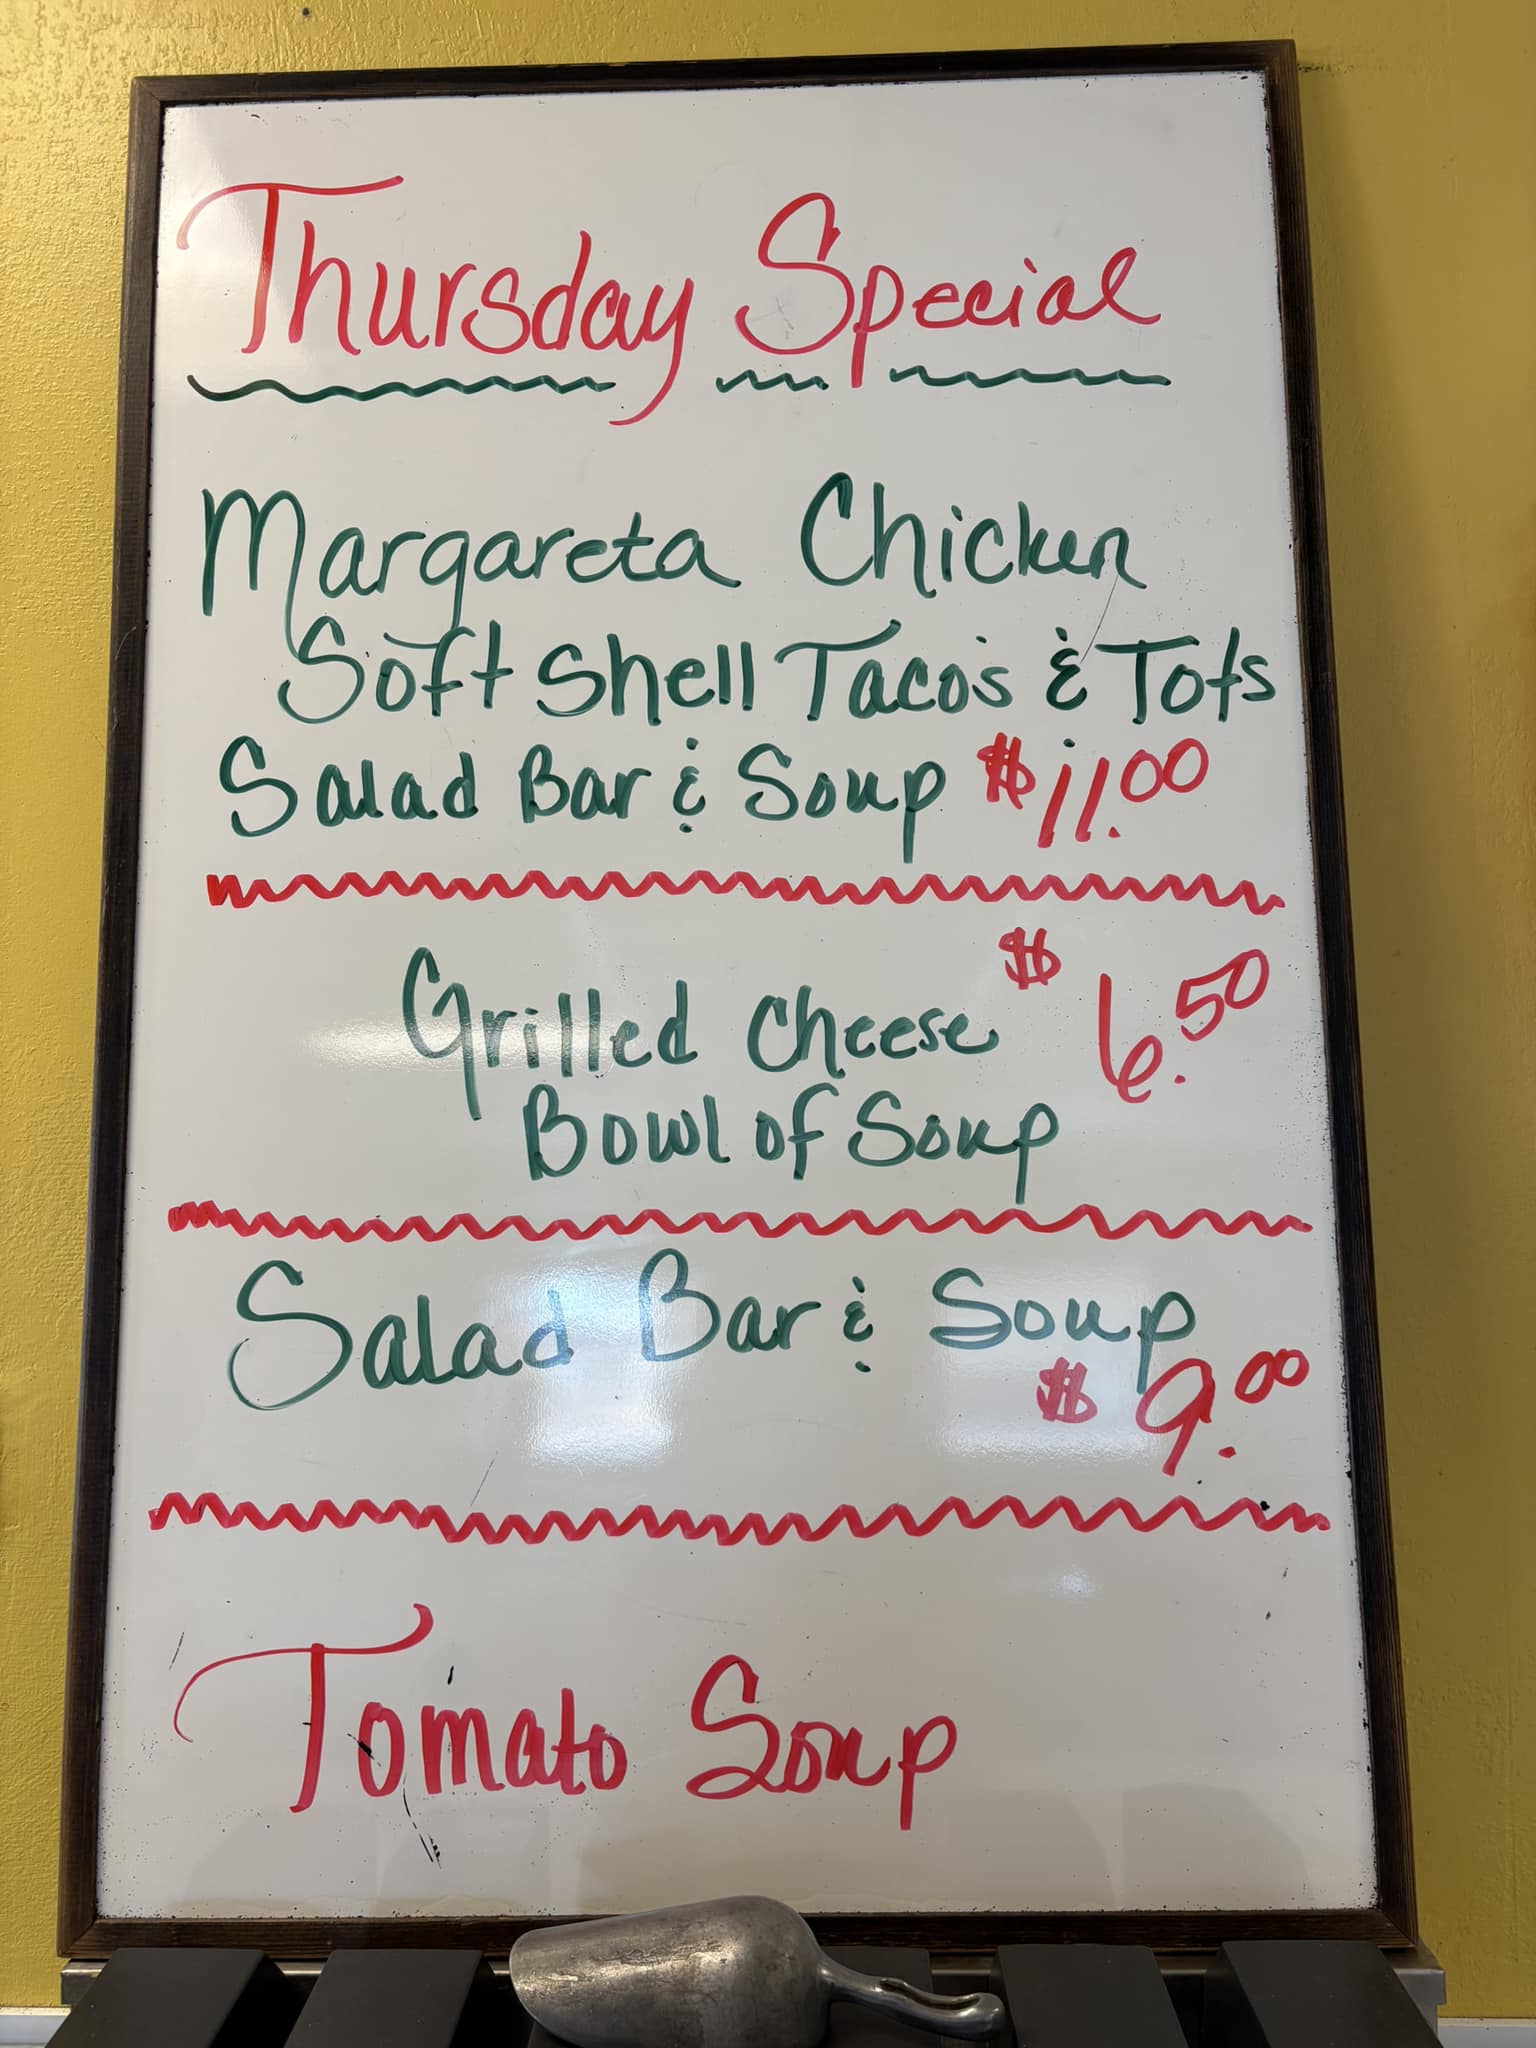 Thursday Special
Margareta Chicken
Soft Shell Taco's & Tots
Salad Bar & Soup $11.00
Grilled Cheese $6.50
Bowl of Soup
Salad Bar & Soup
$9.00
Tomato Soup